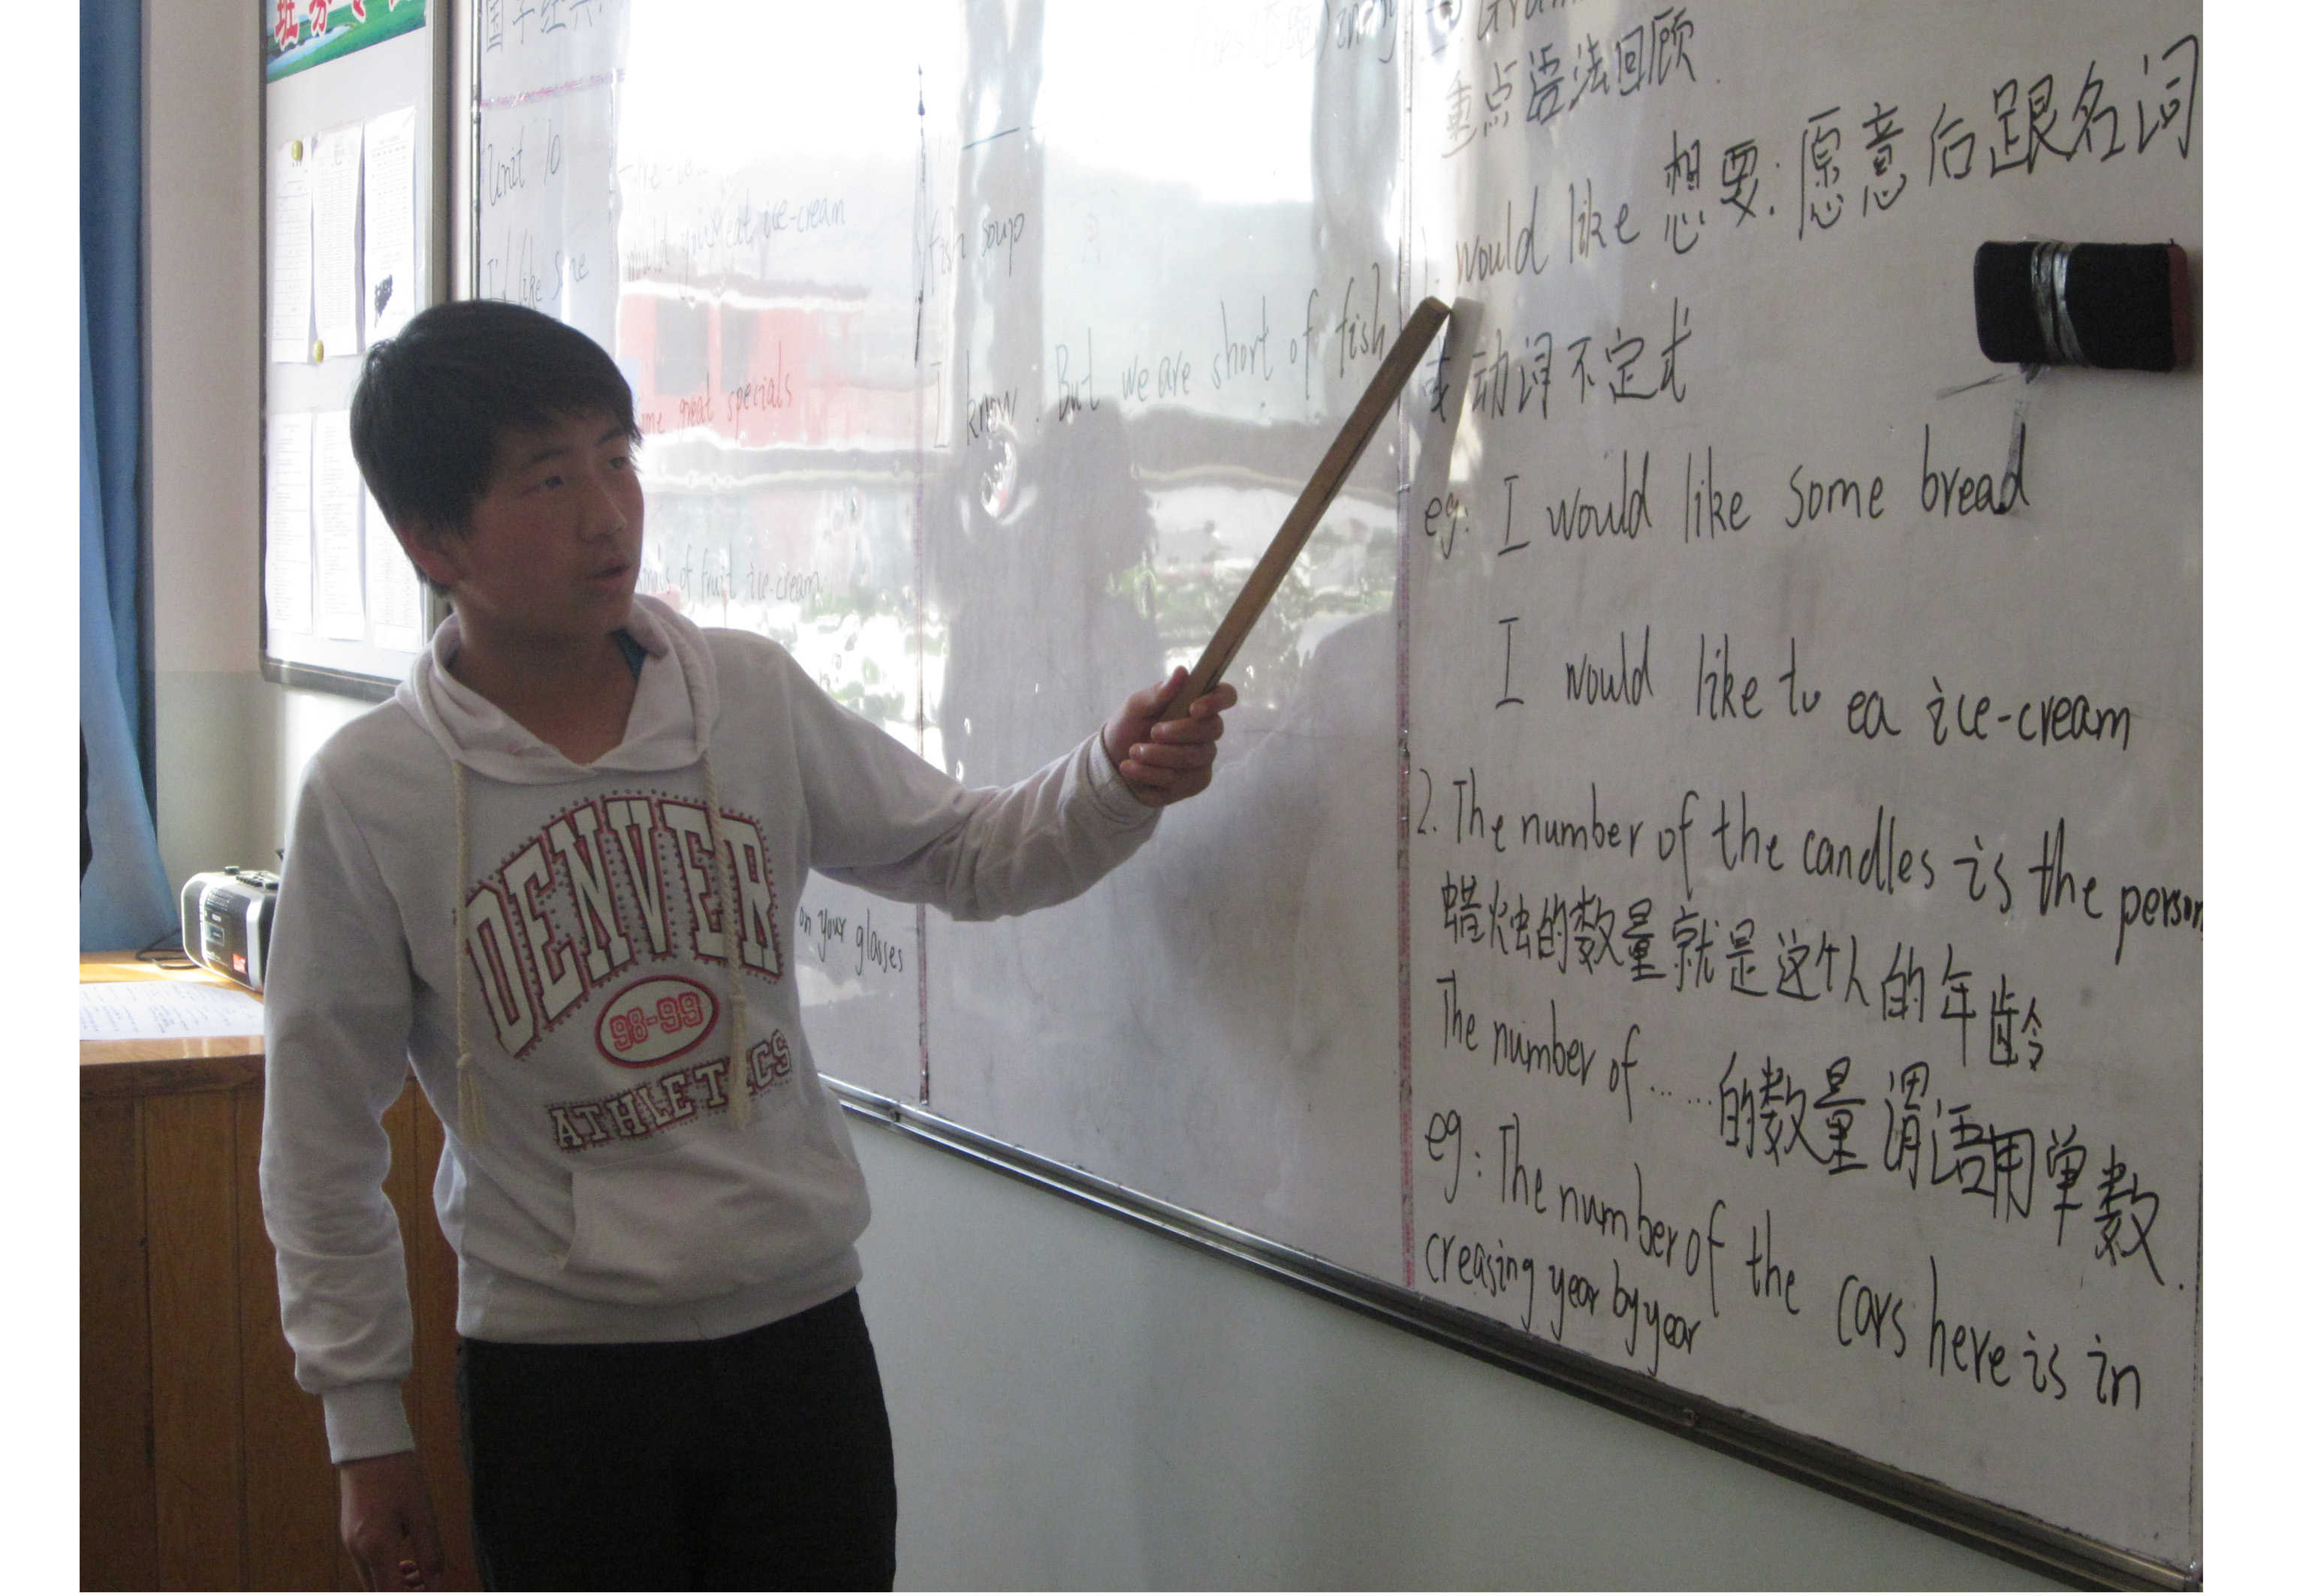 Unit 10
I'd like some
eat ice-cream
great specials
of fruit ice-cream
on your glasses
fish soup
I know. But we are short of fish
重点语法回顾.
would like 想要;愿意后跟名词
或动词不定式
eg: I would like some bread
I would like to ea ice-cream
2. The number of the candles is the person
蜡烛的数量就是这个人的年龄
The number of ......的数量 谓语用单数.
eg: The number of the cars here is in
creasing year by year
DENVER
98-99
ATHLETICS